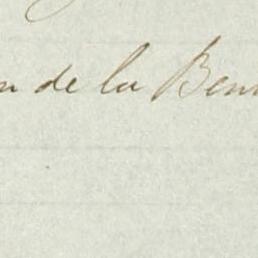 n de la Ben